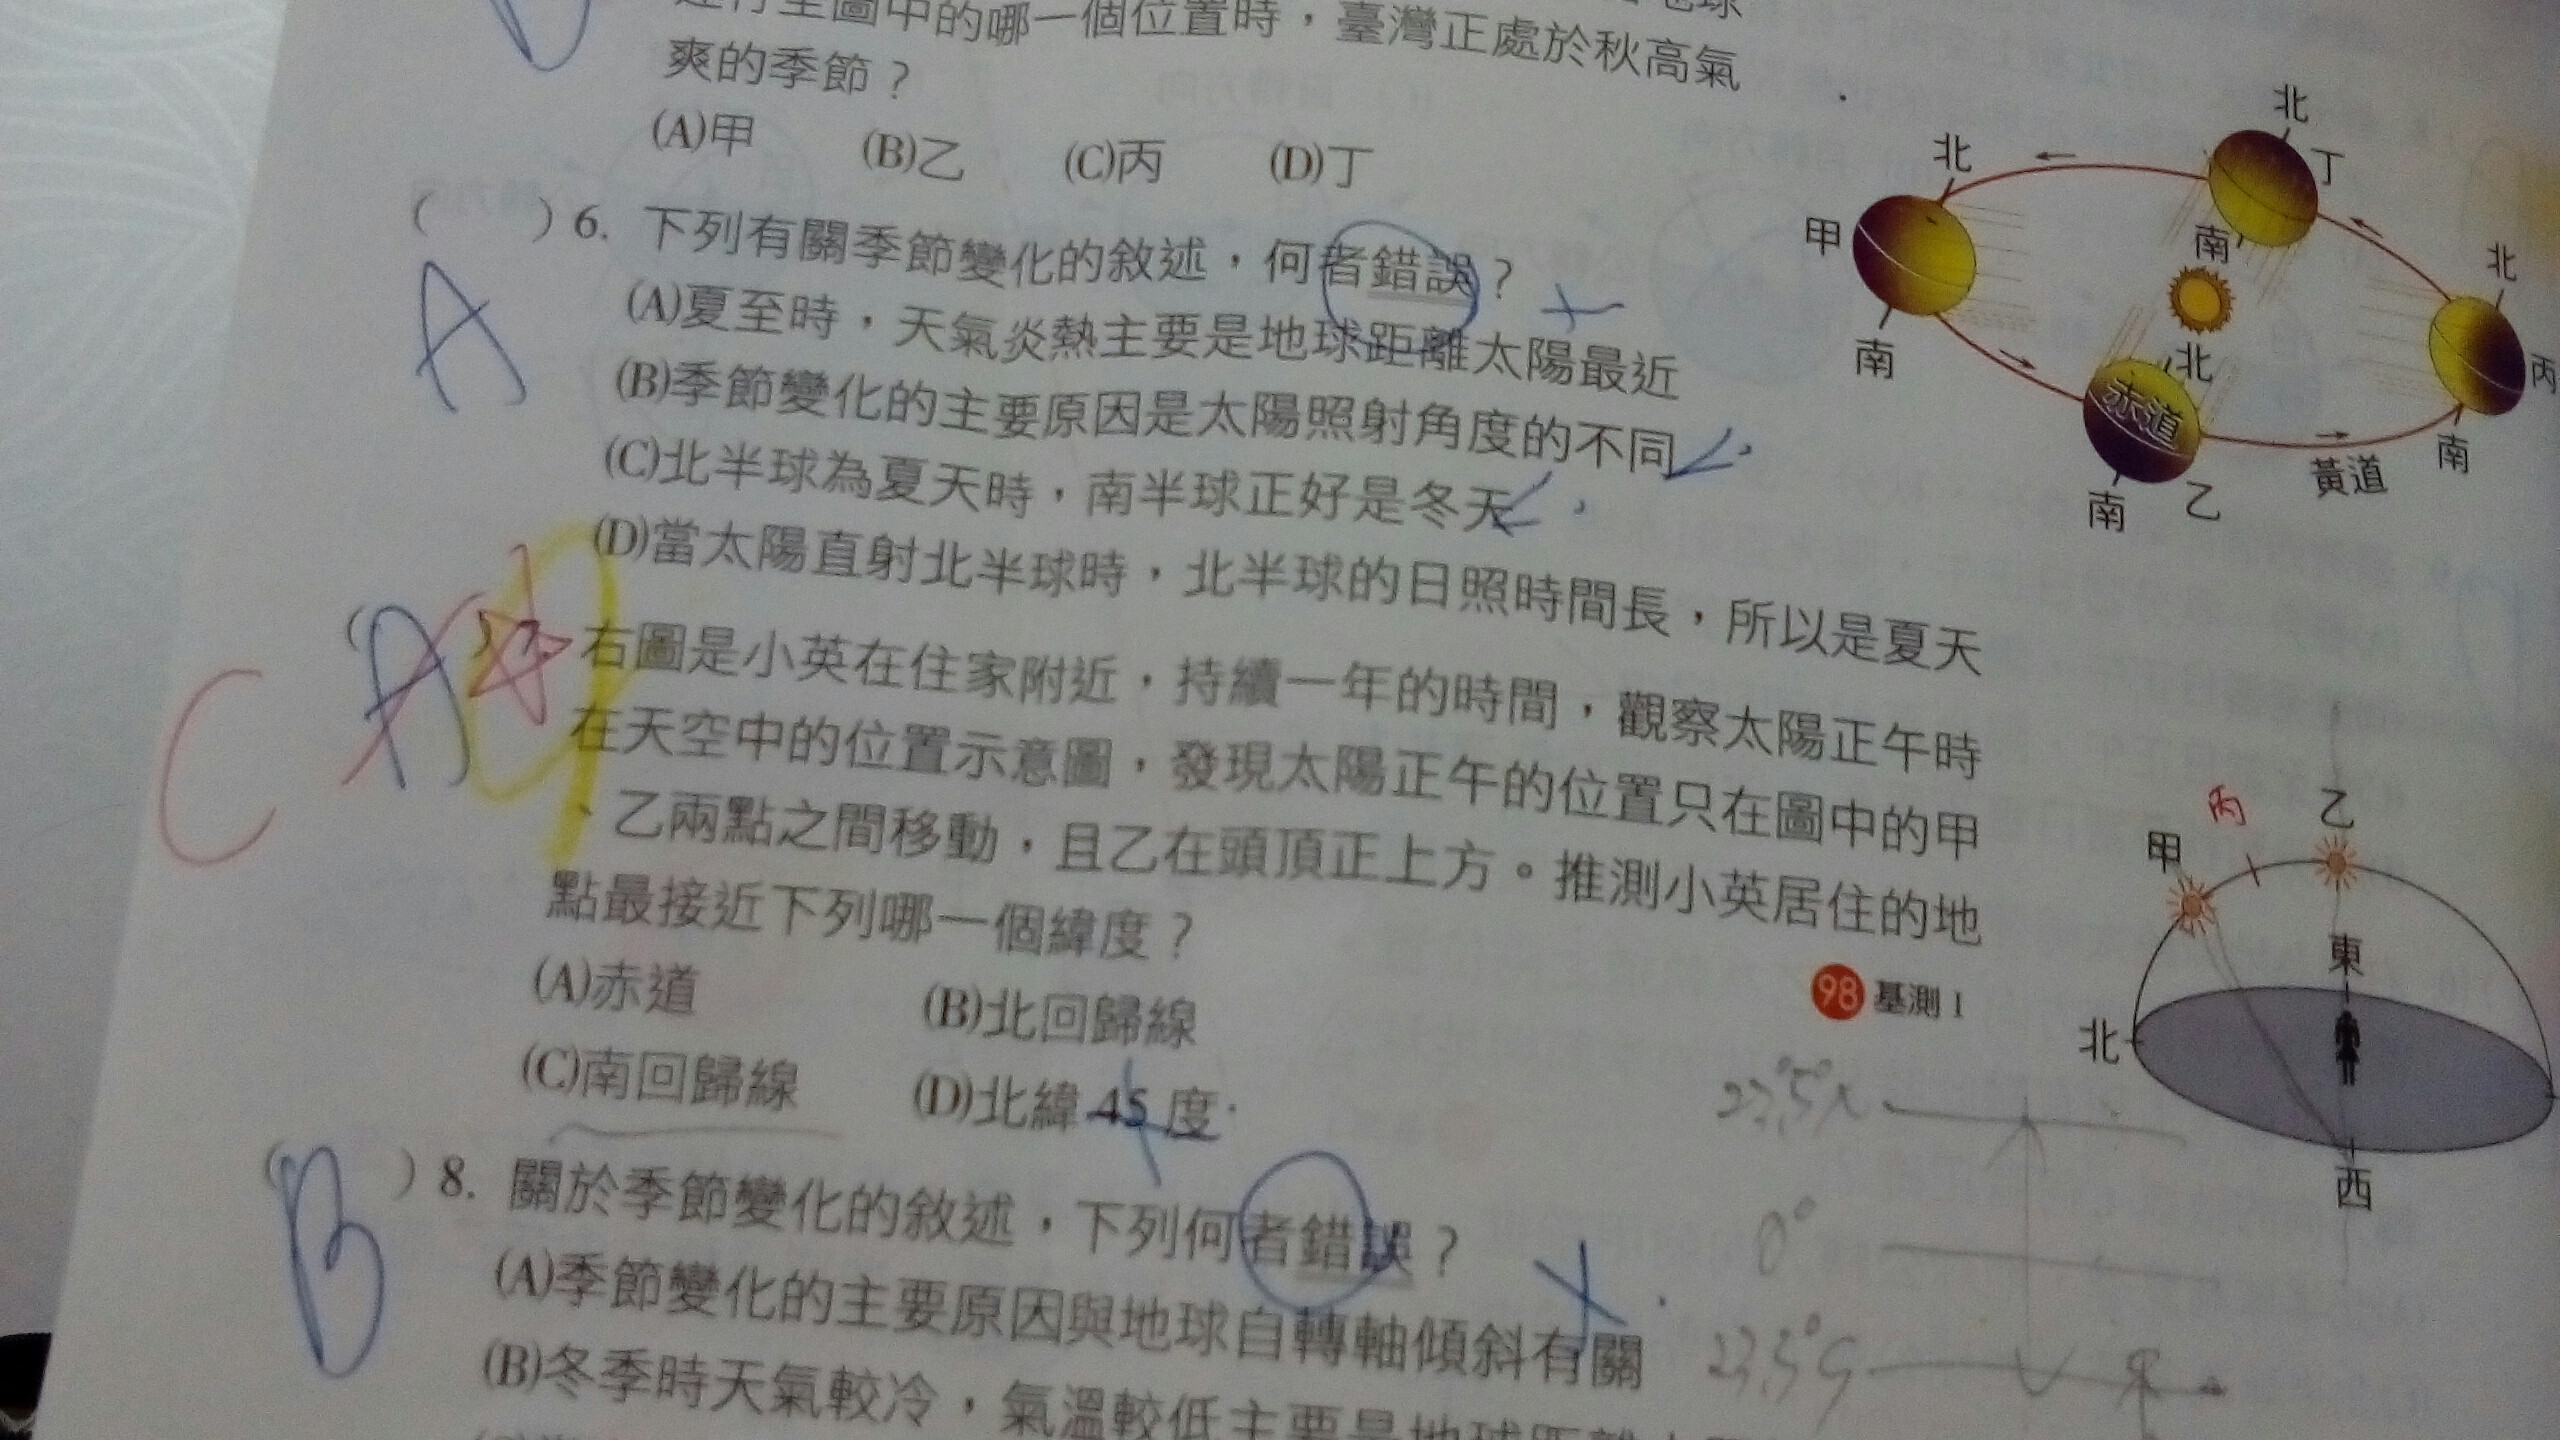 運行至圖中的哪一個位置時，臺灣正處於秋高氣
爽的季節？
(A)甲 (B)乙 (C)丙 (D)丁
北
丁
南
北
甲
南
北
丙
南
北
赤道
南
乙
黃道
( ) 6. 下列有關季節變化的敘述，何者錯誤？
A
(A)夏至時，天氣炎熱主要是地球距離太陽最近
(B)季節變化的主要原因是太陽照射角度的不同
(C)北半球為夏天時，南半球正好是冬天
(D)當太陽直射北半球時，北半球的日照時間長，所以是夏天
C
A
( ) 7. 右圖是小英在住家附近，持續一年的時間，觀察太陽正午時
在天空中的位置示意圖，發現太陽正午的位置只在圖中的甲
、乙兩點之間移動，且乙在頭頂正上方。推測小英居住的地
點最接近下列哪一個緯度？
98 基測 1
(A)赤道 (B)北回歸線
(C)南回歸線 (D)北緯 45 度
丙
乙
甲
東
北
西
23.5°N
0°
23.5°S
B
( ) 8. 關於季節變化的敘述，下列何者錯誤？
(A)季節變化的主要原因與地球自轉軸傾斜有關
(B)冬季時天氣較冷，氣溫較低主要是地球距離